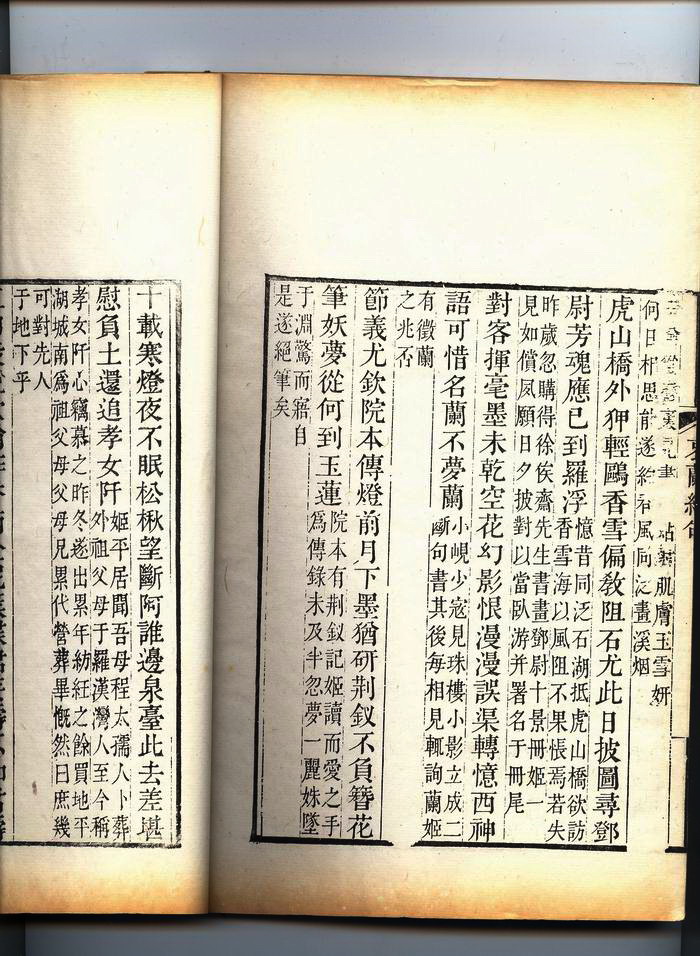 何日相思前遂維春風同泛畫溪烟
虎山橋外狎輕鷗香雪偏敎阻石尤此日披圖尋鄧
尉芳魂應已到羅浮
憶昔同泛石湖抵虎山橋欲訪
香雪海以風阻不果悵焉若失
昨歲忽購得徐俟齋先生書畫鄧尉十景冊姬一
見如償夙願日夕披對以當臥游并署名于冊尾
對客揮毫墨未乾空花幻影恨漫漫誤渠轉憶西神
語可惜名蘭不夢蘭
小峴少寇見珠樓小影立成二
斷句書其後每相見輒詢蘭姬
有徵蘭
之兆否
節義尤欽院本傳燈前月下墨猶研荆釵不負簪花
筆妖夢從何到玉蓮
院本有荆釵記姬讀而愛之手
爲傳錄未及半忽夢一麗姝墜
于淵驚而寤自
是遂絕筆矣
十載寒燈夜不眠松楸望斷阿誰邊泉臺此去差堪
慰負土還追孝女阡
姬平居聞吾母程太孺人卜葬
外祖父母于羅漢灣人至今稱
孝女阡心竊慕之昨冬遂出累年紡紅之餘買地平
湖城南爲祖父母父母兄累代營葬畢慨然曰庶幾
可對先人
于地下乎